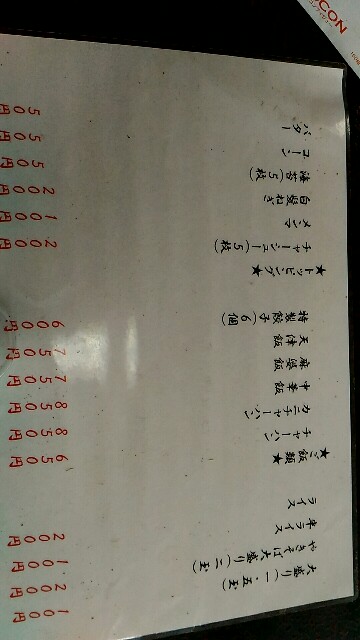 大盛り(一・五玉) 100円
やきそば大盛り(二玉) 200円
半ライス 100円
ライス 200円
★ご飯類★
チャーハン 650円
カニチャーハン 850円
中華飯 850円
麻婆飯 750円
天津飯 750円
特製餃子(6個) 600円
★トッピング★
チャーシュー(5枚) 200円
メンマ 100円
白髪ねぎ 200円
海苔(5枚) 50円
コーン 50円
バター 50円